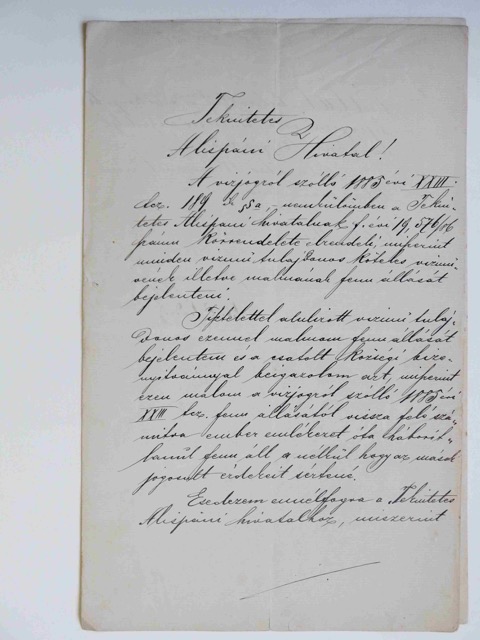 Tekintetes
Alispáni Hivatal!
A vizjogról szólló 1885 évi XXIII.
tcz. 189 § sa, nemkülömben a Tekin-
tetes Alispáni hivatalnak f. évi 19,576/86
számu Körrendelete elrendeli, miszerint
minden vizmü tulajdonos köteles vizmü-
vének illetve malmának fenn állását
bejelenteni.
Tisztelettel alulirott vizmü tulaj-
donos ezennel malmom fenn állását
bejelentem és a csatolt Községi bizo-
nyitvánnyal beigazolom azt, miszerint
ezen malom a vizjogról szólló 1885 évi
XXIII tcz. fenn állásától vissza felé szá-
mitva ember emlékezet óta háborit-
lanul fenn áll a nélkül hogy az mások
jogosult érdekeit sértené.
Esedezem ennélfogva a Tekintetes
Alispáni hivatalhoz, miszerint